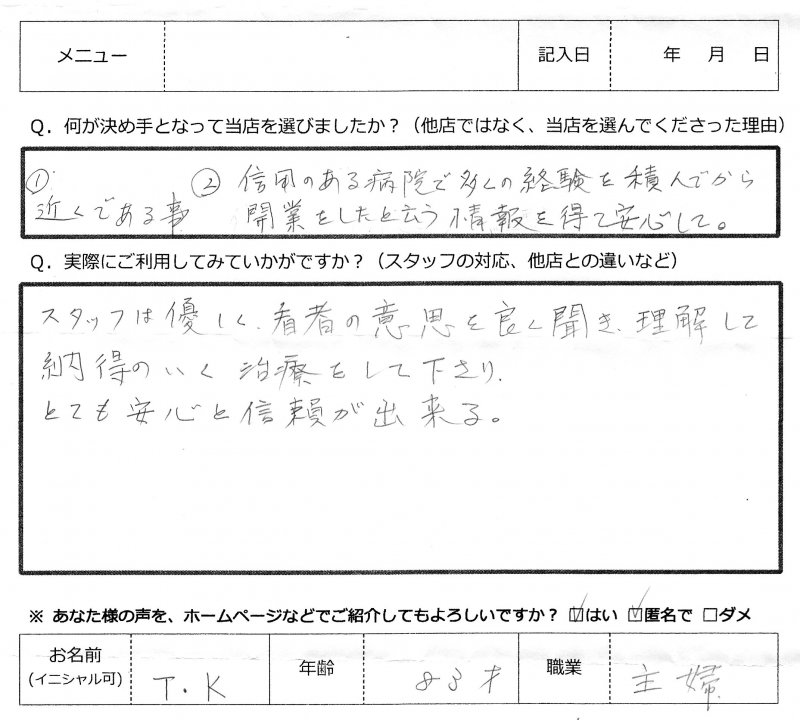 メニュー 記入日 年 月 日
Q．何が決め手となって当店を選びましたか？（他店ではなく、当店を選んでくださった理由）
① ② 信用のある病院で多くの経験を積んでから
近くである事 開業をしたと云う情報を得て安心して。
Q．実際にご利用してみていかがですか？（スタッフの対応、他店との違いなど）
スタッフは優しく、看者の意思を良く聞き、理解して
納得のいく治療をして下さり、
とても安心と信頼が出来る。
※ あなた様の声を、ホームページなどでご紹介してもよろしいですか？ ☑はい ☑匿名で □ダメ
お名前 年齢 職業
(イニシャル可) T.K 83才 主婦